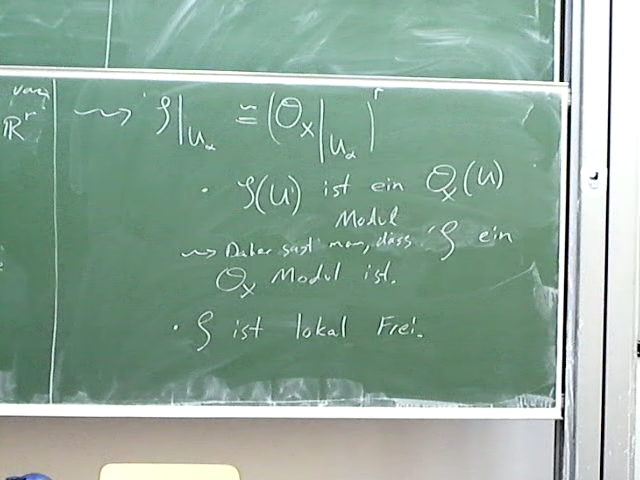 ℝ^r
⇝ 𝒮|_{U_α} ≅ (𝒪_X|_{U_α})^r
· 𝒮(U) ist ein 𝒪_X(U)
Modul
⇝ Daher sagt man, dass 𝒮 ein
𝒪_X Modul ist.
· 𝒮 ist lokal Frei.